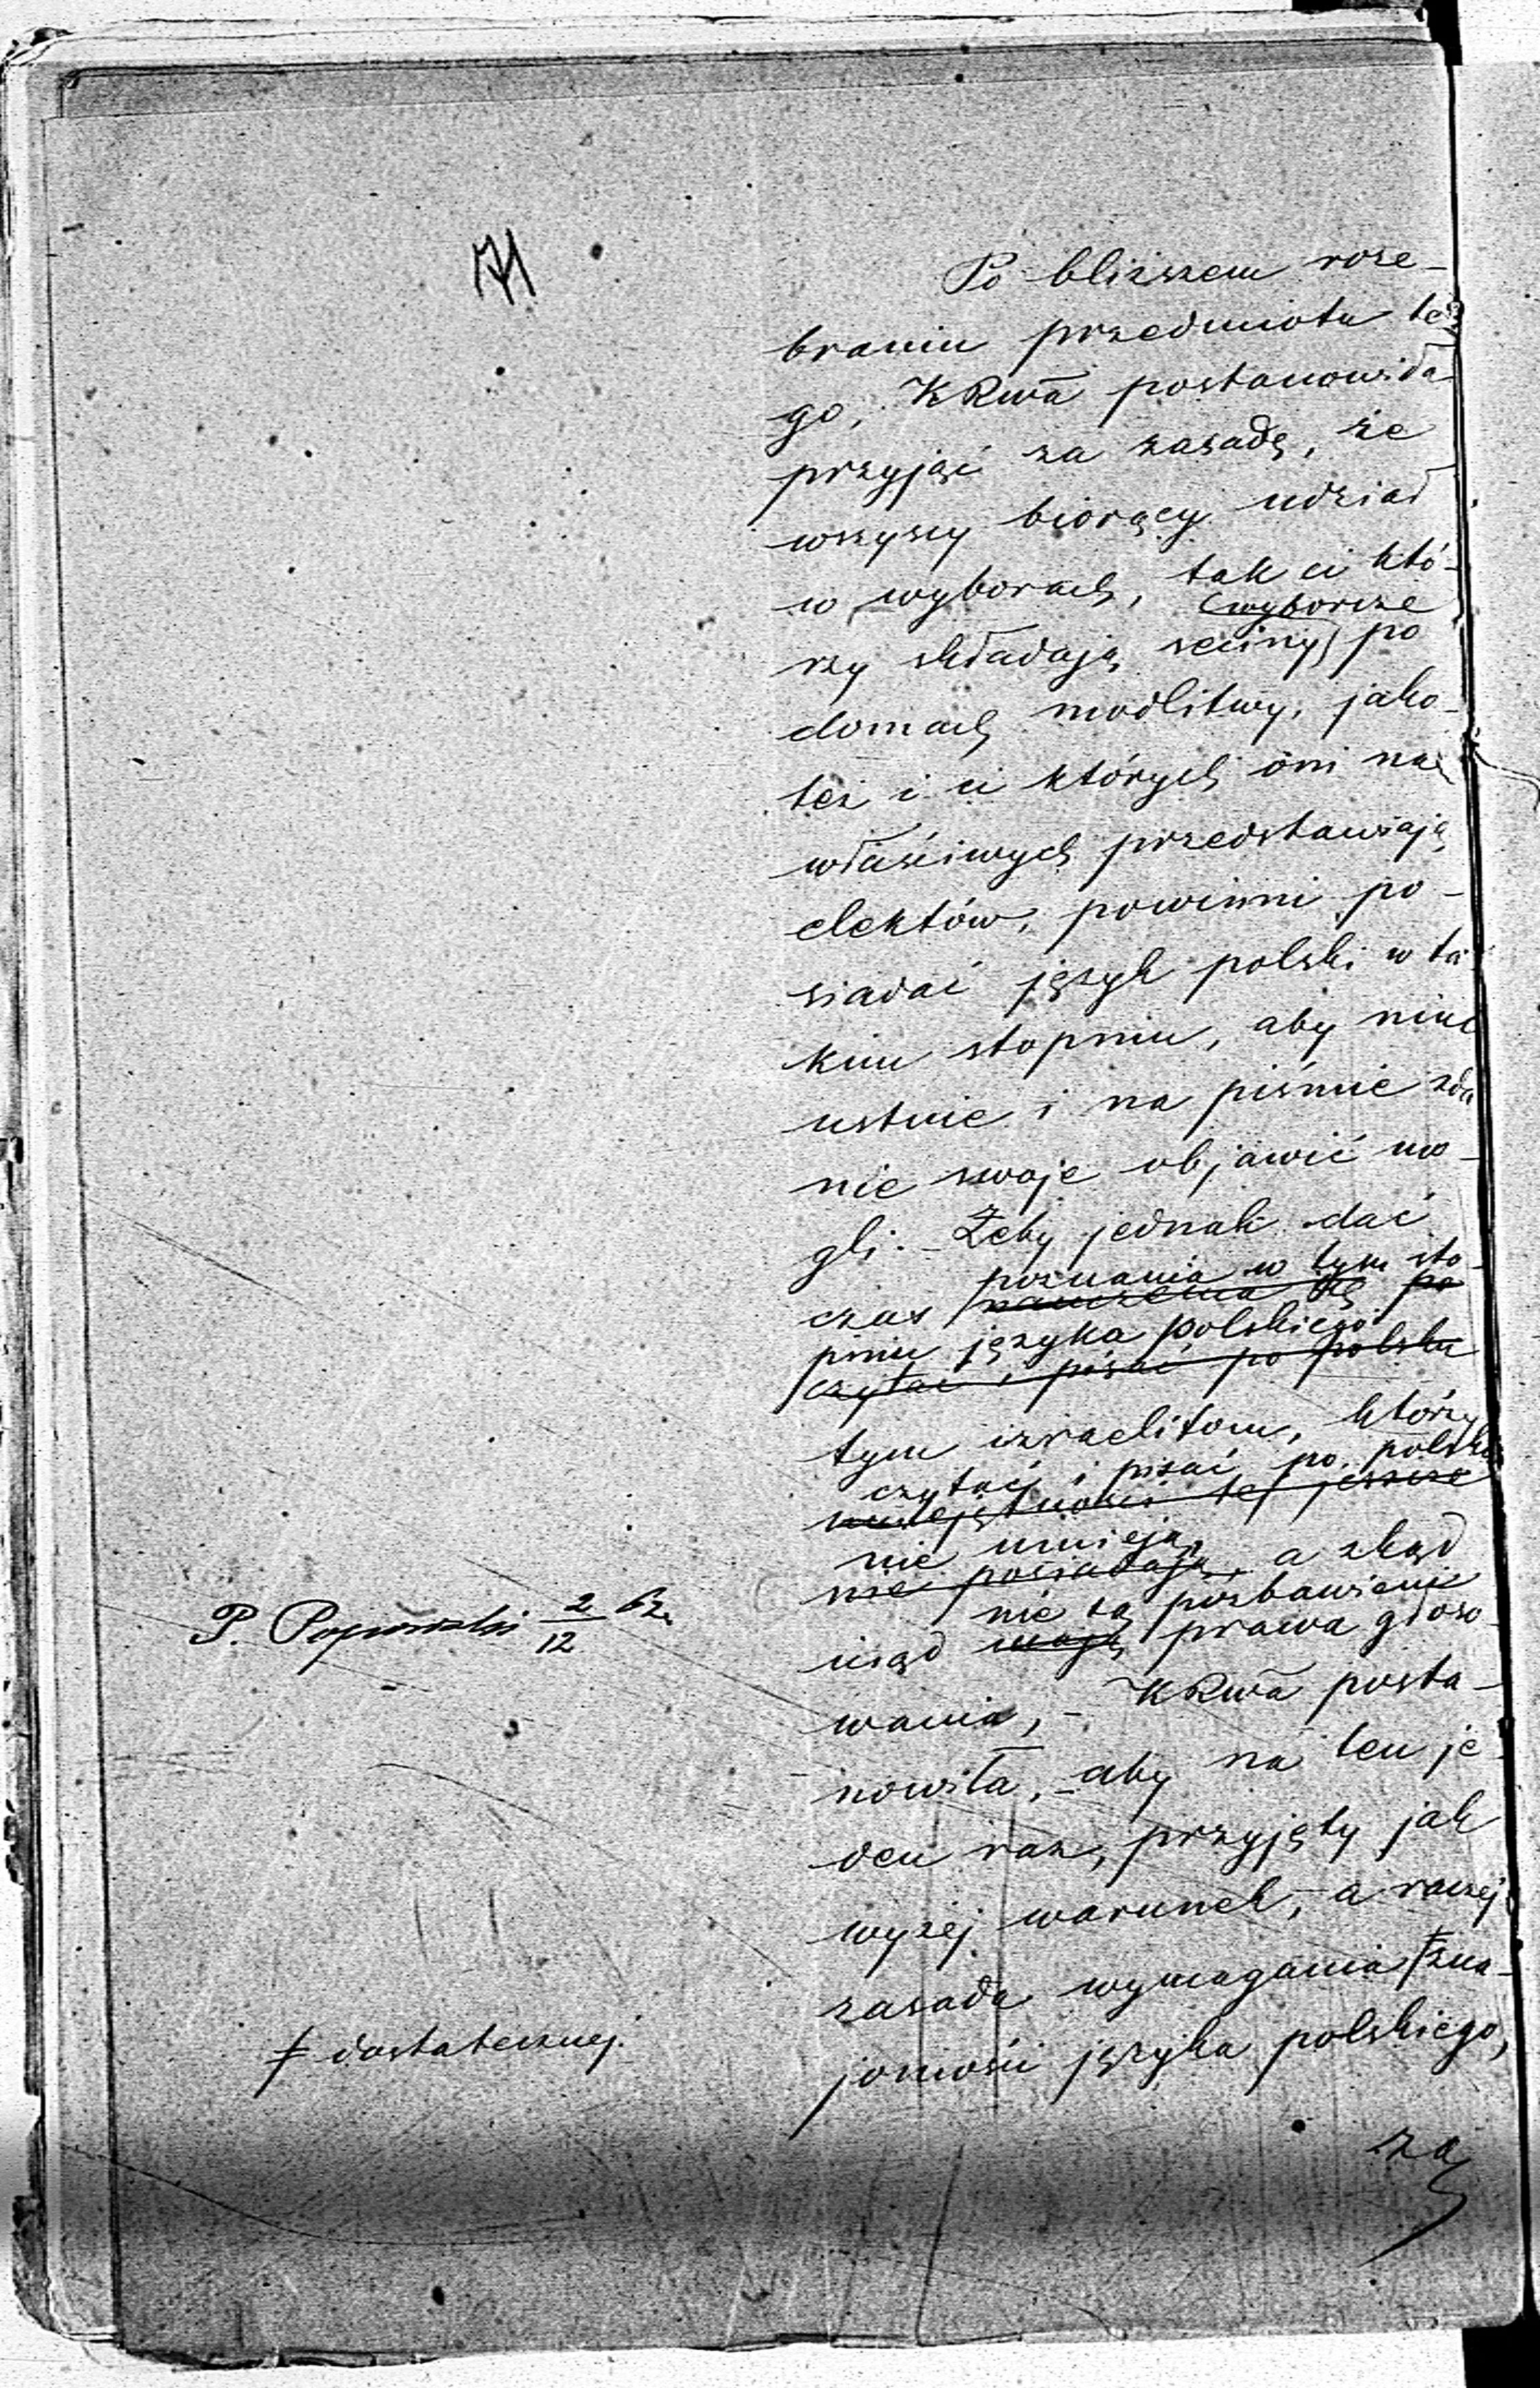 Po bliższem roze-
braniu przedmiotu te-
go, KRwa postanowiła
przyjąć za zasadę, że
wszyscy biorący udział
w wyborach, tak ci któ-
(wyborcze
rzy składają seciny) po
domach modlitwy, jako-
też i ci których oni na
właściwych przedstawiają
elektów, powinni po-
siadać język polski w ta
kim stopniu, aby nim
ustnie i na piśmie zda
nie swoje objawić mo-
gli. - Żeby jednak dać
poznania w tym sto-
czas nauczenia się po
pniu języka polskiego
czytać i pisać po polsku
tym izraelitom, którzy
czytać i pisać po polsku
umiejętności tej jeszcze
nie umieją,
nie posiadają, a zkąd
nie są pozbawieni
inąd mają prawa głoso-
wania, - KRwa posta-
nowiła, - aby na ten je-
den raz, przyjęty jak
wyżej warunek, a raczej
zasada wymagania ǂ zna-
jomości języka polskiego,
za
P. 2/12 62
ǂ dostatecznej.